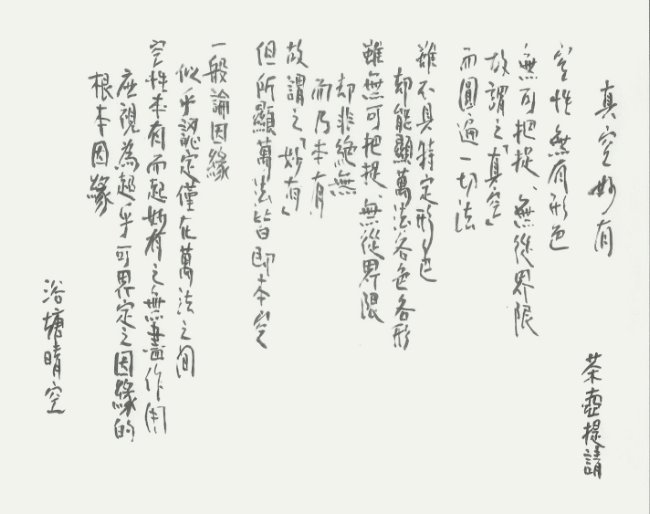 真空妙有
茶壺提請
空性無有形色
無可把捉、無從界限
故謂之「真空」
而圓遍一切法
雖不具特定形色
却能顯萬法各色各形
雖無可把捉、無從界限
却非絕無
而乃本有
故謂之「妙有」
但所顯萬法皆即本空
一般論因緣
似乎認定僅在萬法之間
空性本有而起妙有之無盡作用
應視為超乎可界定之因緣的
根本因緣
浴塘晴空